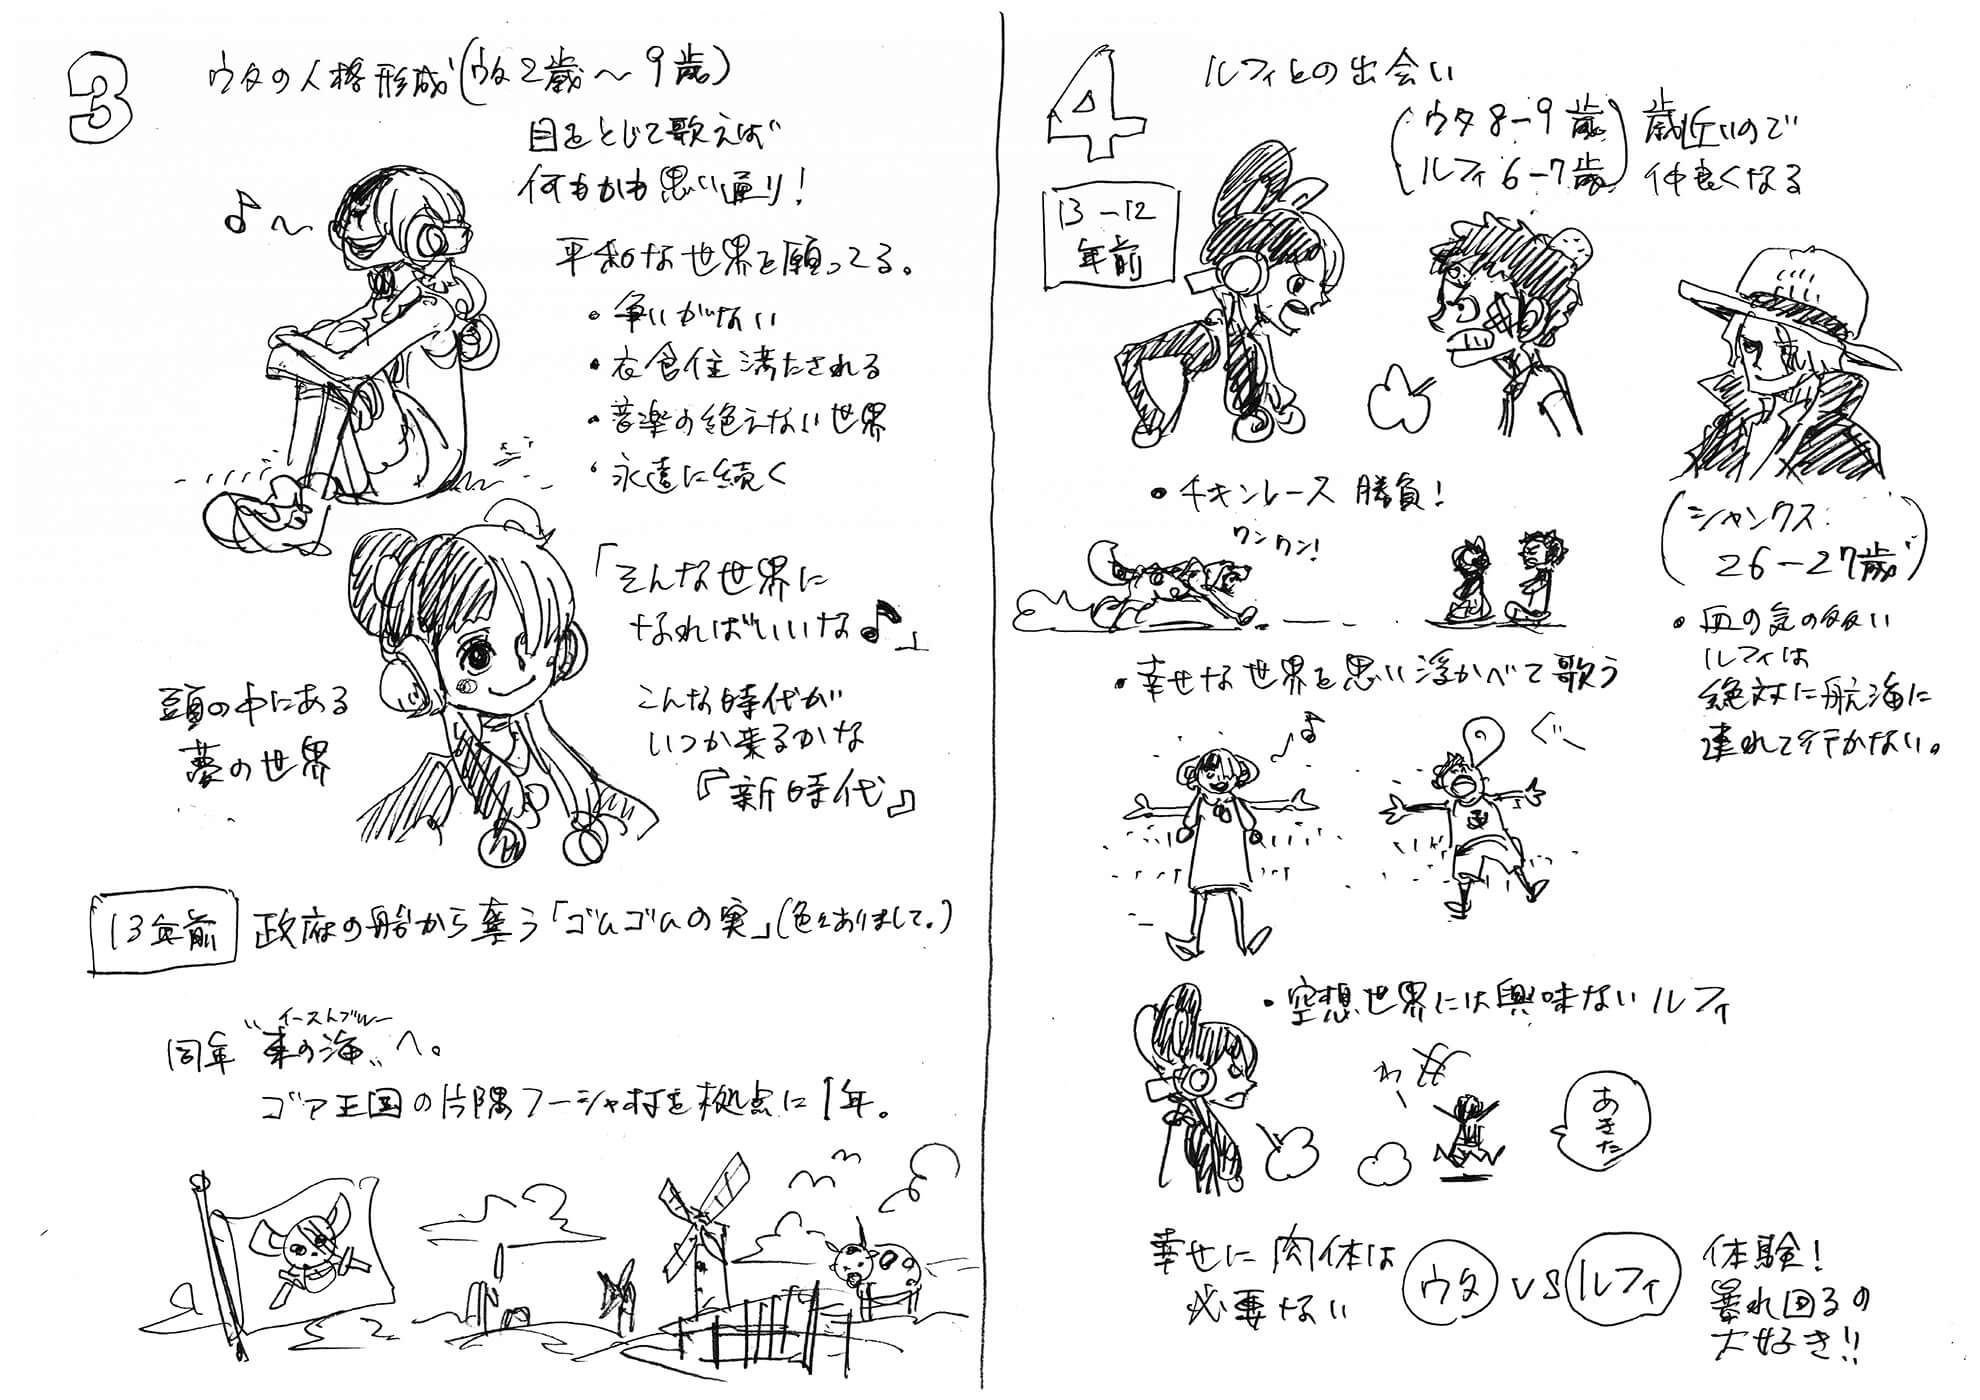 3
ウタの人格形成(ウタ2歳〜9歳)
目をとじて歌えば
何もかも思い通り!
♪〜
平和な世界を願ってる。
・争いがない
・衣食住満たされる
・音楽の絶えない世界
・永遠に続く
「そんな世界に
なればいいな♪」
頭の中にある
夢の世界
こんな時代が
いつか来るかな
『新時代』
13年前 政府の船から奪う「ゴムゴムの実」(色々ありまして。)
イーストブルー
同年“東の海”へ。
ゴア王国の片隅フーシャ村を拠点に1年。
4
ルフィとの出会い
(ウタ8-9歳
ルフィ6-7歳)
歳近いので
仲良くなる
13-12
年前
・チキンレース 勝負!
ワンワン!
(シャンクス:
26-27歳)
・血の気の多い
ルフィは
絶対に航海に
連れて行かない。
・幸せな世界を思い浮かべて歌う
♪♪
ぐ〜
・空想世界には興味ないルフィ
わー
あきた
幸せに肉体は
必要ない
ウタ VS ルフィ
体験!
暴れ回るの
大好き!!